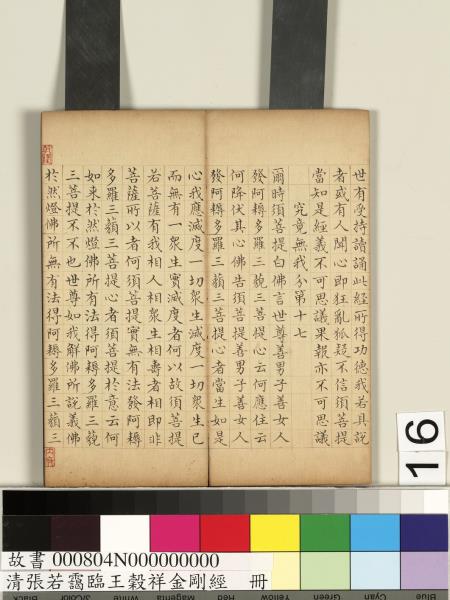 世有受持讀誦此經所得功德我若具說
者或有人聞心即狂亂狐疑不信須菩提
當知是經義不可思議果報亦不可思議
究竟無我分第十七
爾時須菩提白佛言世尊善男子善女人
發阿耨多羅三藐三菩提心云何應住云
何降伏其心佛告須菩提善男子善女人
發阿耨多羅三藐三菩提心者當生如是
心我應滅度一切眾生滅度一切眾生已
而無有一眾生實滅度者何以故須菩提
若菩薩有我相人相眾生相壽者相即非
菩薩所以者何須菩提實無有法發阿耨
多羅三藐三菩提心者須菩提於意云何
如來於然燈佛所有法得阿耨多羅三藐
三菩提不不也世尊如我解佛所說義佛
於然燈佛所無有法得阿耨多羅三藐三
16
故書 000804N000000000
清張若靄臨王穀祥金剛經 冊
Black 3/Color White Magenta Red Yellow Green Cyan Blue